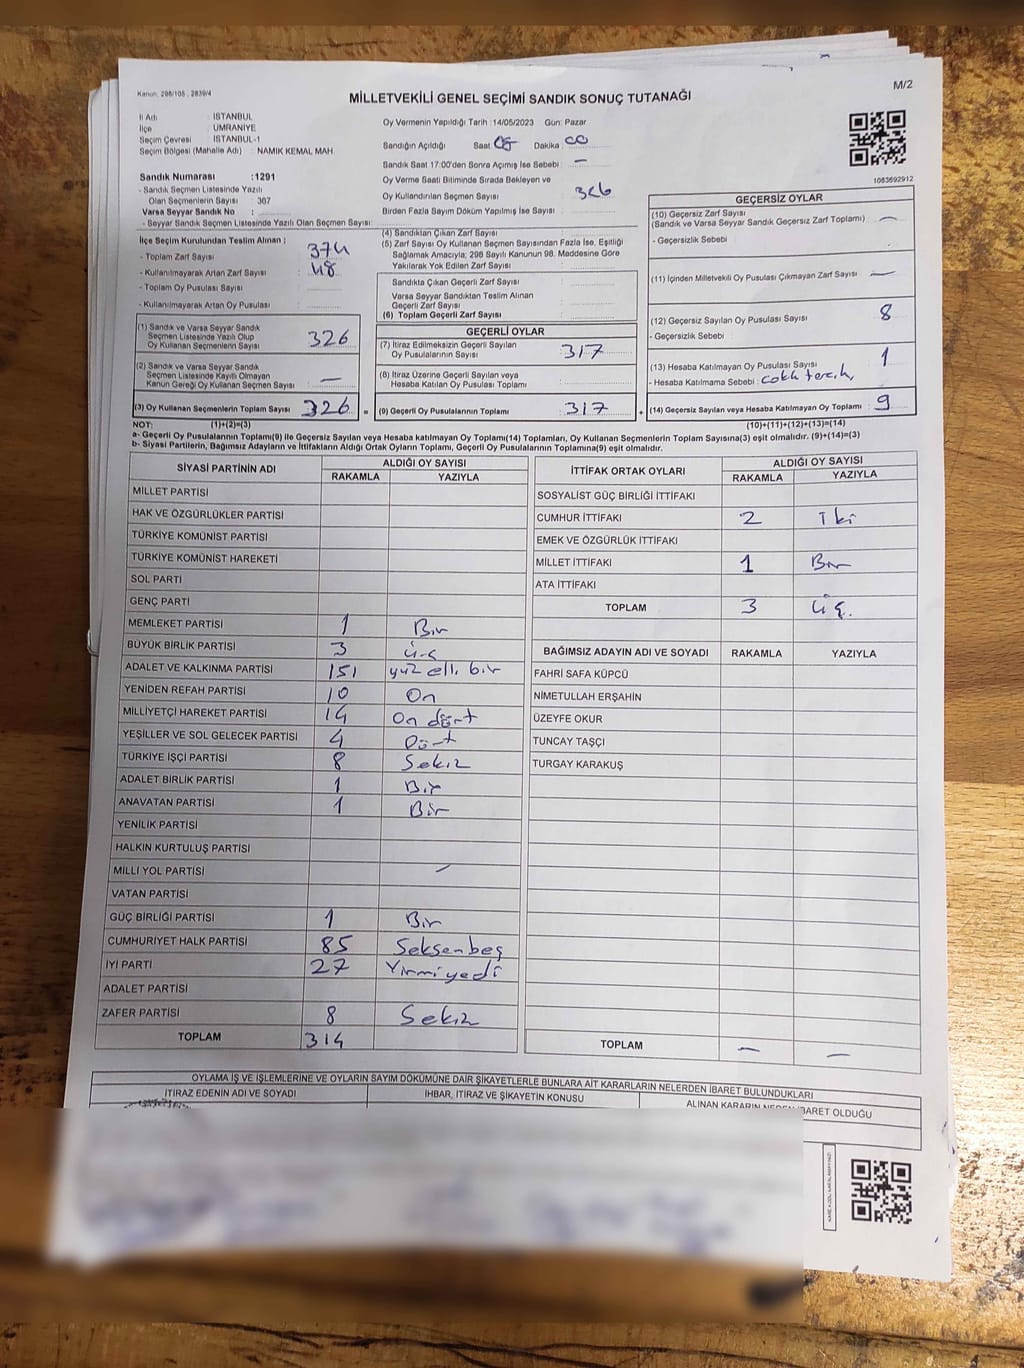 Kanun: 298/105 , 2839/4
M/2
MİLLETVEKİLİ GENEL SEÇİMİ SANDIK SONUÇ TUTANAĞI
İl Adı : İSTANBUL
İlçe : ÜMRANİYE
Seçim Çevresi : İSTANBUL-1
Seçim Bölgesi (Mahalle Adı) : NAMIK KEMAL MAH.
Sandık Numarası : 1291
- Sandık Seçmen Listesinde Yazılı
Olan Seçmenlerin Sayısı : 367
Varsa Seyyar Sandık No :
- Seyyar Sandık Seçmen Listesinde Yazılı Olan Seçmen Sayısı:
Oy Vermenin Yapıldığı Tarih : 14/05/2023 Gün: Pazar
Sandığın Açıldığı Saat 05 Dakika : 00
Sandık Saat 17:00'den Sonra Açımış İse Sebebi : —
Oy Verme Saati Bitiminde Sırada Bekleyen ve
Oy Kullandırılan Seçmen Sayısı : 326
Birden Fazla Sayım Döküm Yapılmış İse Sayısı :
1083692912
İlçe Seçim Kurulundan Teslim Alınan ;
- Toplam Zarf Sayısı : 374
- Kullanılmayarak Artan Zarf Sayısı : 48
- Toplam Oy Pusulası Sayısı :
- Kullanılmayarak Artan Oy Pusulası :
(1) Sandık ve Varsa Seyyar Sandık
Seçmen Listesinde Yazılı Olup
Oy Kullanan Seçmenlerin Sayısı : 326
(2) Sandık ve Varsa Seyyar Sandık
Seçmen Listesinde Kayıtlı Olmayan
Kanun Gereği Oy Kullanan Seçmen Sayısı : —
(3) Oy Kullanan Seçmenlerin Toplam Sayısı : 326 =
(4) Sandıktan Çıkan Zarf Sayısı :
(5) Zarf Sayısı Oy Kullanan Seçmen Sayısından Fazla İse, Eşitliği
Sağlamak Amacıyla; 298 Sayılı Kanunun 98. Maddesine Göre
Yakılarak Yok Edilen Zarf Sayısı :
Sandıkta Çıkan Geçerli Zarf Sayısı :
Varsa Seyyar Sandıktan Teslim Alınan
Geçerli Zarf Sayısı :
(6) Toplam Geçerli Zarf Sayısı :
GEÇERLİ OYLAR
(7) İtiraz Edilmeksizin Geçerli Sayılan
Oy Pusulalarının Sayısı : 317
(8) İtiraz Üzerine Geçerli Sayılan veya
Hesaba Katılan Oy Pusulası Toplamı :
(9) Geçerli Oy Pusulalarının Toplamı : 317 +
GEÇERSİZ OYLAR
(10) Geçersiz Zarf Sayısı
(Sandık ve Varsa Seyyar Sandık Geçersiz Zarf Toplamı) : —
- Geçersizlik Sebebi :
(11) İçinden Milletvekili Oy Pusulası Çıkmayan Zarf Sayısı : —
(12) Geçersiz Sayılan Oy Pusulası Sayısı : 8
- Geçersizlik Sebebi :
(13) Hesaba Katılmayan Oy Pusulası Sayısı : 1
- Hesaba Katılmama Sebebi :
(14) Geçersiz Sayılan veya Hesaba Katılmayan Oy Toplamı : 9
NOT: (1)+(2)=(3) (10)+(11)+(12)+(13)=(14)
a- Geçerli Oy Pusulalarının Toplamı(9) ile Geçersiz Sayılan veya Hesaba katılmayan Oy Toplamı(14) Toplamları, Oy Kullanan Seçmenlerin Toplam Sayısına(3) eşit olmalıdır. (9)+(14)=(3)
b- Siyasi Partilerin, Bağımsız Adayların ve İttifakların Aldığı Ortak Oyların Toplamı, Geçerli Oy Pusulalarının Toplamına(9) eşit olmalıdır.
SİYASİ PARTİNİN ADI ALDIĞI OY SAYISI
RAKAMLA YAZIYLA
MİLLET PARTİSİ
HAK VE ÖZGÜRLÜKLER PARTİSİ
TÜRKİYE KOMÜNİST PARTİSİ
TÜRKİYE KOMÜNİST HAREKETİ
SOL PARTİ
GENÇ PARTİ
MEMLEKET PARTİSİ 1 Bir
BÜYÜK BİRLİK PARTİSİ 3 üç
ADALET VE KALKINMA PARTİSİ 151 yüz elli bir
YENİDEN REFAH PARTİSİ 10 On
MİLLİYETÇİ HAREKET PARTİSİ 14 On dört
YEŞİLLER VE SOL GELECEK PARTİSİ 4 Dört
TÜRKİYE İŞÇİ PARTİSİ 8 Sekiz
ADALET BİRLİK PARTİSİ 1 Bir
ANAVATAN PARTİSİ 1 Bir
YENİLİK PARTİSİ
HALKIN KURTULUŞ PARTİSİ
MİLLİ YOL PARTİSİ —
VATAN PARTİSİ
GÜÇ BİRLİĞİ PARTİSİ 1 Bir
CUMHURİYET HALK PARTİSİ 85 Seksenbeş
İYİ PARTİ 27 Yirmiyedi
ADALET PARTİSİ
ZAFER PARTİSİ 8 Sekiz
TOPLAM 314
İTTİFAK ORTAK OYLARI ALDIĞI OY SAYISI
RAKAMLA YAZIYLA
SOSYALİST GÜÇ BİRLİĞİ İTTİFAKI
CUMHUR İTTİFAKI 2 iki
EMEK VE ÖZGÜRLÜK İTTİFAKI
MİLLET İTTİFAKI 1 Bir
ATA İTTİFAKI
TOPLAM 3 üç.
BAĞIMSIZ ADAYIN ADI VE SOYADI RAKAMLA YAZIYLA
FAHRİ SAFA KÜPCÜ
NİMETULLAH ERŞAHİN
ÜZEYFE OKUR
TUNCAY TAŞÇI
TURGAY KARAKUŞ
TOPLAM — —
OYLAMA İŞ VE İŞLEMLERİNE VE OYLARIN SAYIM DÖKÜMÜNE DAİR ŞİKAYETLERLE BUNLARA AİT KARARLARIN NELERDEN İBARET BULUNDUKLARI
İTİRAZ EDENİN ADI VE SOYADI İHBAR, İTİRAZ VE ŞİKAYETİN KONUSU ALINAN KARARIN NEDEN İBARET OLDUĞU